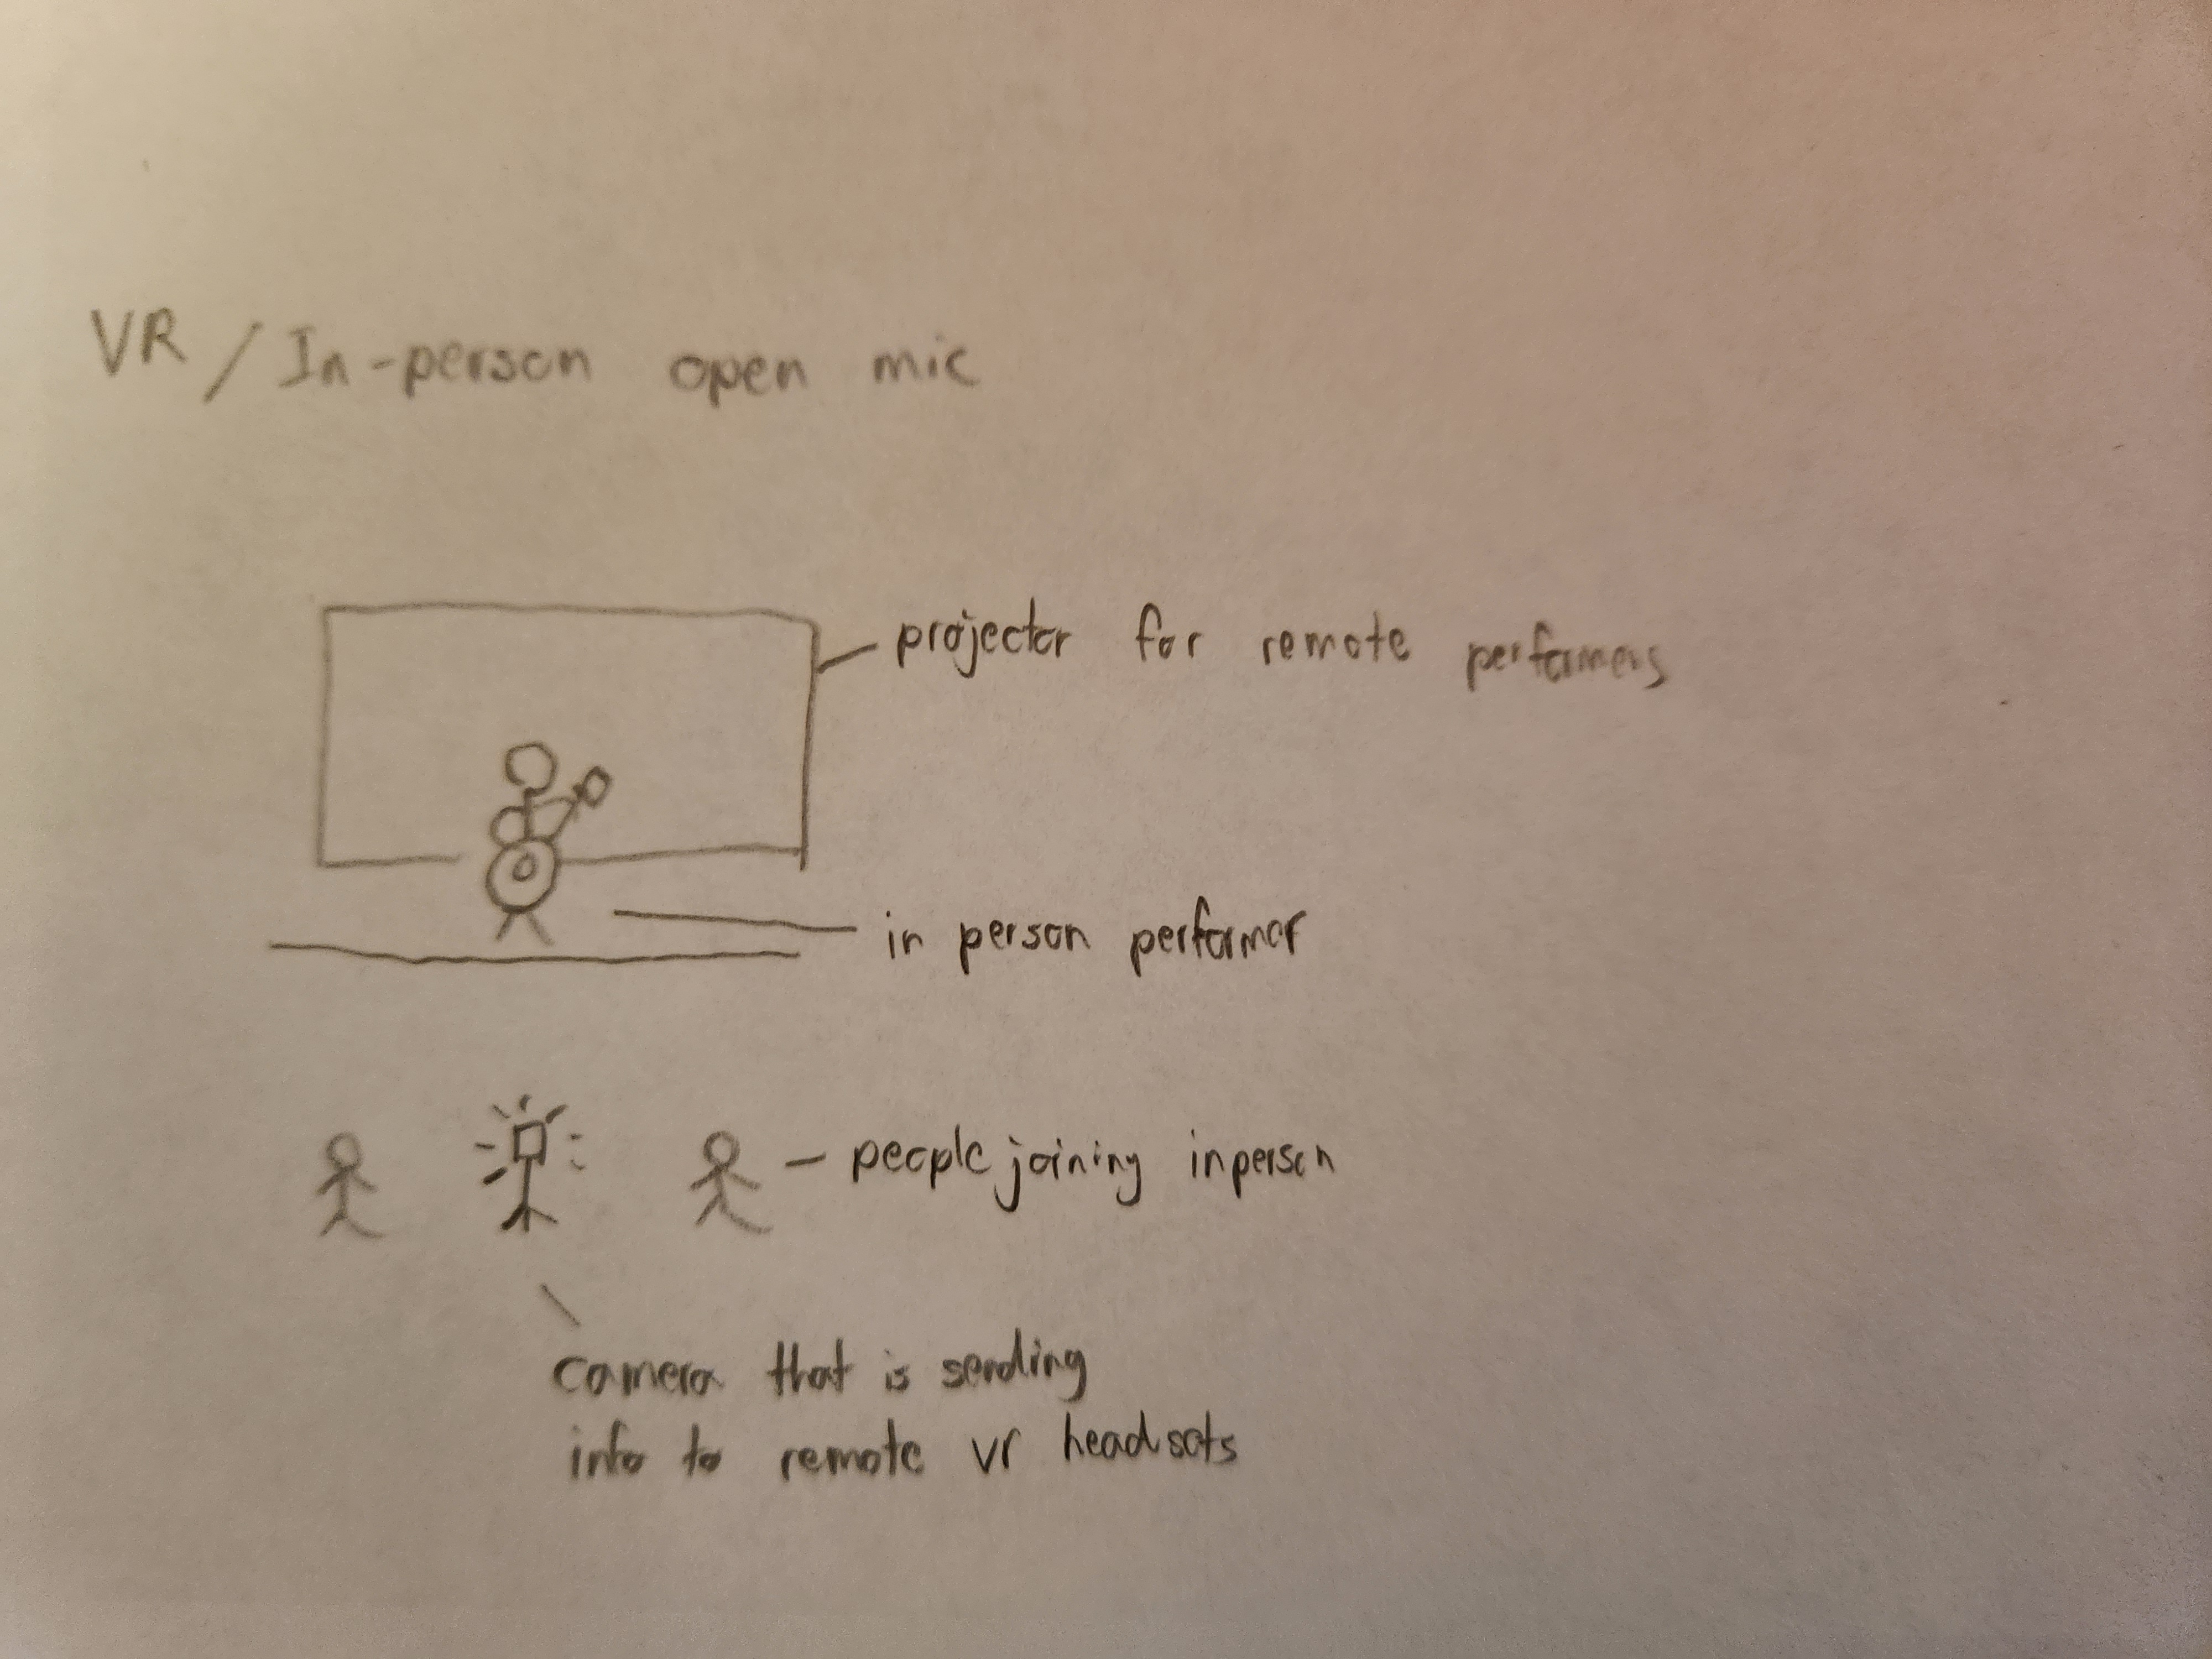 VR / In-person open mic
projector for remote performers
in person performer
people joining inperson
camera that is sending
info to remote vr headsets